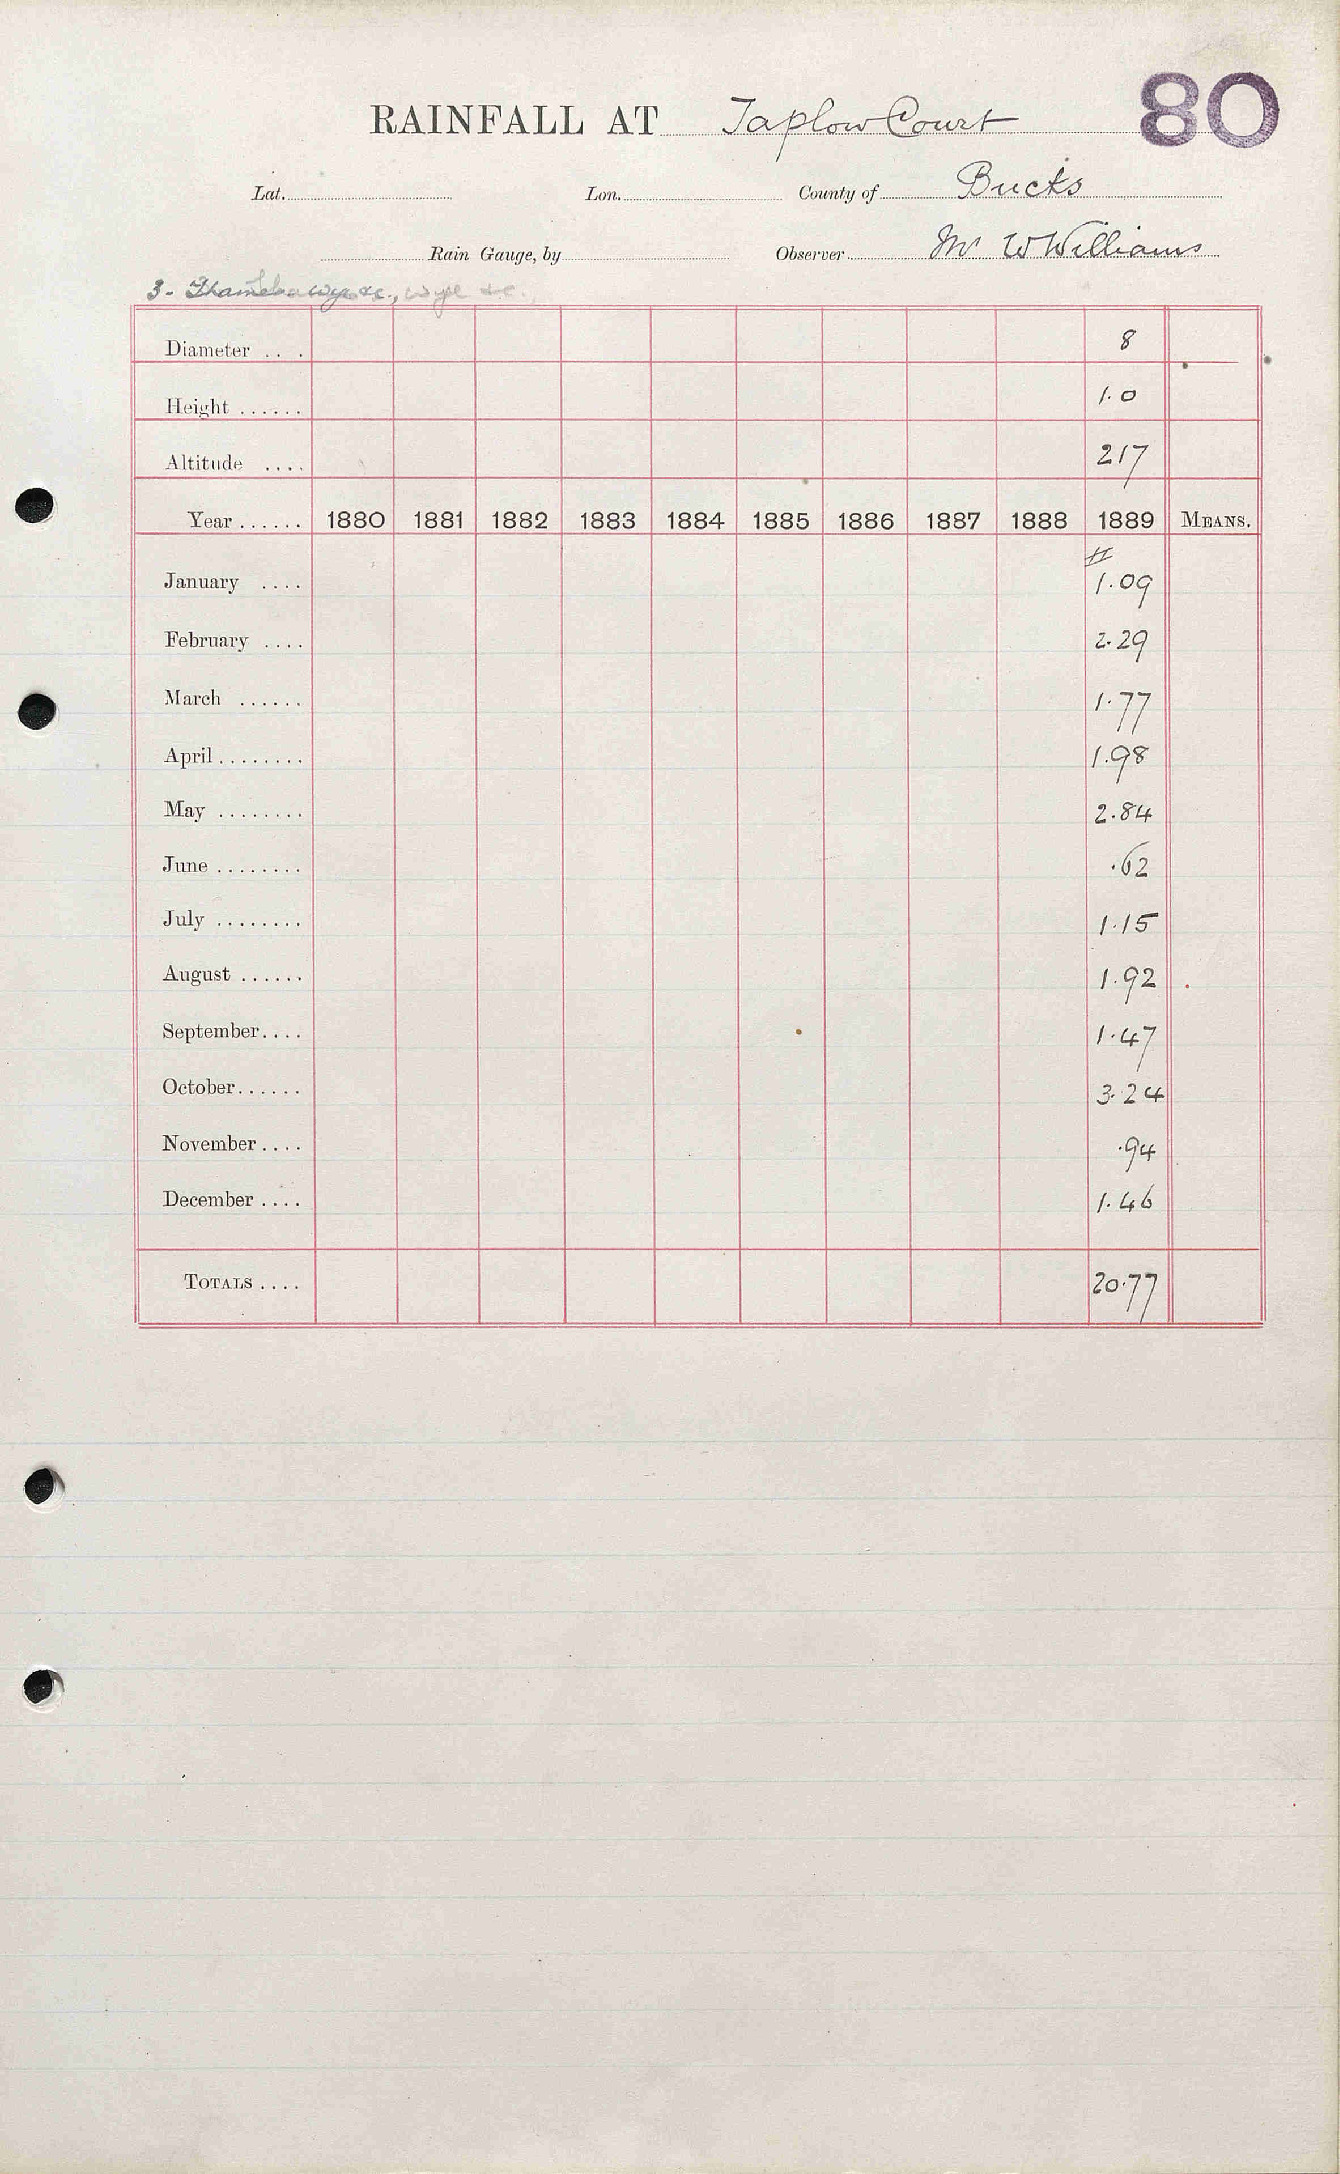 80
RAINFALL AT Taplow Court
Lat. Lon. County of Bucks
Rain Gauge, by Observer Mr W Williams
3-
Diameter .. . 8
Height ...... 1.0
Altitude .... 217
Year ...... 1880 1881 1882 1883 1884 1885 1886 1887 1888 1889 MEANS.
January .... 1.09
February .... 2.29
March ...... 1.77
April ........ 1.98
May ........ 2.84
June ........ .62
July ........ 1.15
August ...... 1.92
September.... 1.47
October...... 3.24
November .... .94
December .... 1.46
TOTALS .... 20.77